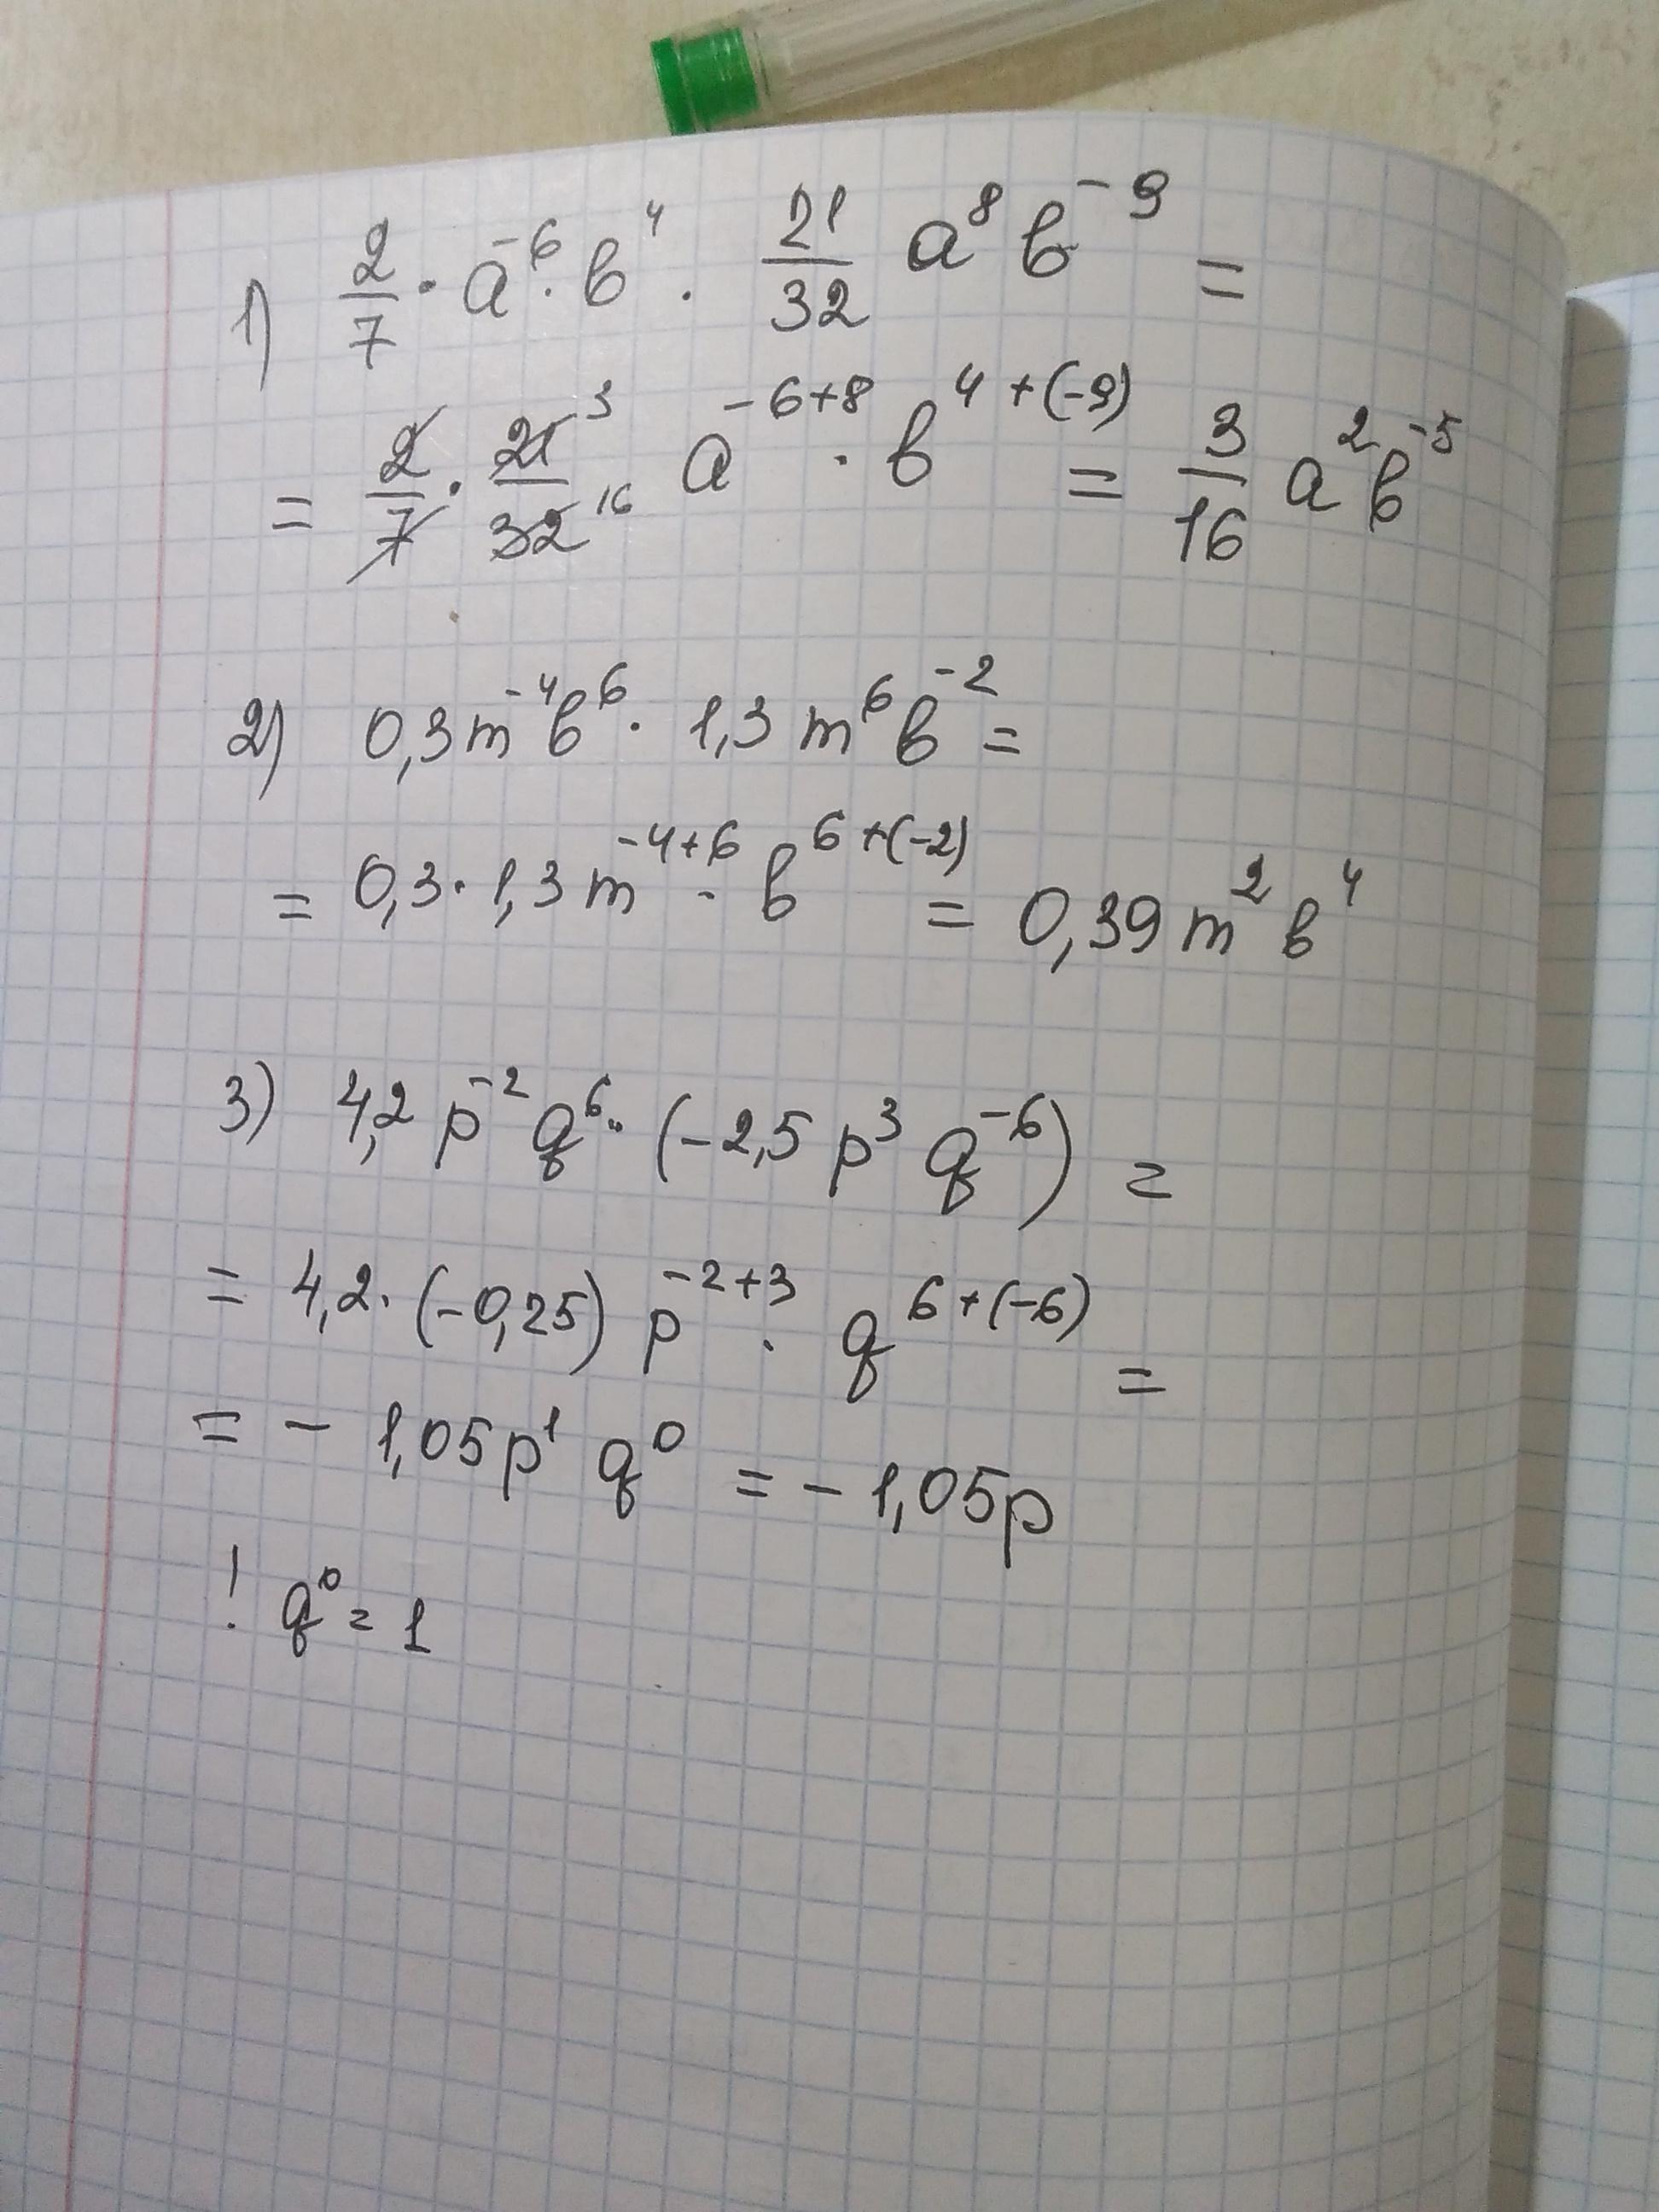 1) 2/7 · a⁻⁶ · b⁴ · 21/32 a⁸ b⁻⁹ =
= 2/7 · 21³/32¹⁶ a⁻⁶⁺⁸ · b⁴⁺⁽⁻⁹⁾ = 3/16 a² b⁻⁵
2) 0,3 m⁻⁴ b⁶ · 1,3 m⁶ b⁻² =
= 0,3 · 1,3 m⁻⁴⁺⁶ · b⁶⁺⁽⁻²⁾ = 0,39 m² b⁴
3) 4,2 p⁻² q⁶ · (-2,5 p³ q⁻⁶) =
= 4,2 · (-0,25) p⁻²⁺³ · q⁶⁺⁽⁻⁶⁾ =
= - 1,05 p¹ q⁰ = - 1,05 p
! q⁰ = 1